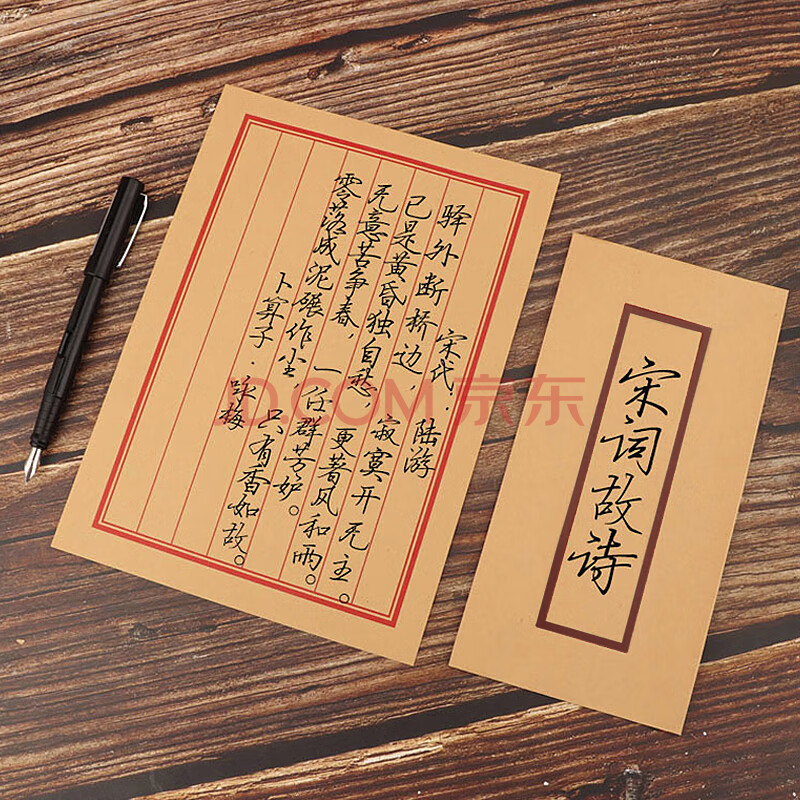 宋代·陆游
驿外断桥边，寂寞开无主。
已是黄昏独自愁，更著风和雨。
无意苦争春，一任群芳妒。
零落成泥碾作尘，只有香如故。
卜算子·咏梅
宋词故诗
JD.COM 京东